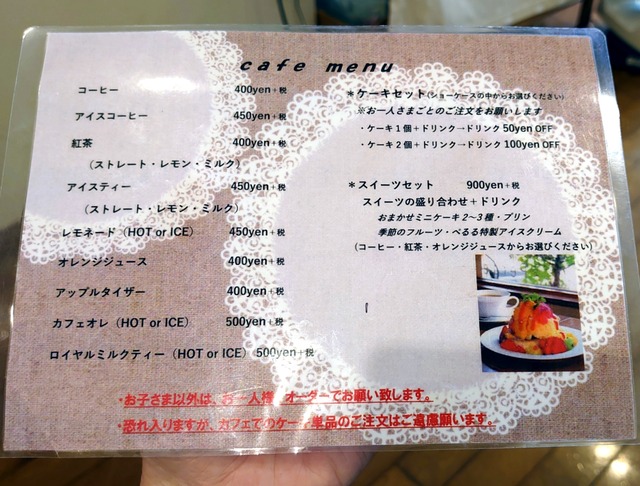 cafe menu
コーヒー 400yen+税
アイスコーヒー 450yen+税
紅茶 400yen+税
(ストレート・レモン・ミルク)
アイスティー 450yen+税
(ストレート・レモン・ミルク)
レモネード(HOT or ICE) 450yen+税
オレンジジュース 400yen+税
アップルタイザー 400yen+税
カフェオレ(HOT or ICE) 500yen+税
ロイヤルミルクティー(HOT or ICE) 500yen+税
*ケーキセット(ショーケースの中からお選びください)
※お一人さまごとのご注文をお願いします
・ケーキ1個+ドリンク→ドリンク50yen OFF
・ケーキ2個+ドリンク→ドリンク100yen OFF
*スイーツセット 900yen+税
スイーツの盛り合わせ+ドリンク
おまかせミニケーキ2~3種・プリン
季節のフルーツ・ぺるる特製アイスクリーム
(コーヒー・紅茶・オレンジジュースからお選びください)
・お子さま以外は、お一人様 オーダーでお願い致します。
・恐れ入りますが、カフェでのケーキ単品のご注文はご遠慮願います。